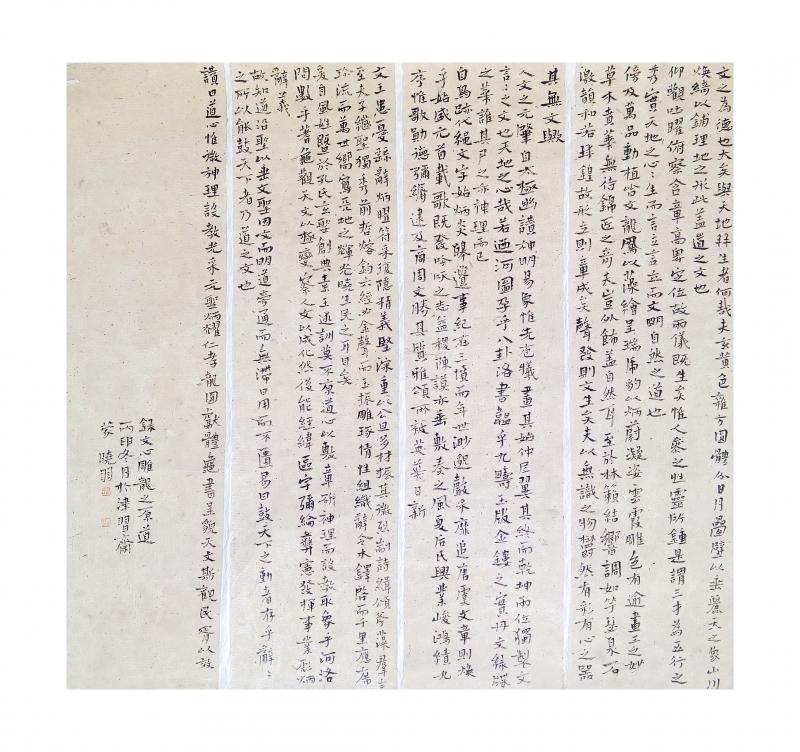 文之為德也大矣與天地并生者何哉夫玄黃色雜方圓體分日月疊璧以垂麗天之象山川
煥綺以鋪理地之形此蓋道之文也
仰觀吐曜俯察含章高卑定位故兩儀既生矣惟人參之性靈所鍾是謂三才為五行之
秀實天地之心心生而言立言立而文明自然之道也
傍及萬品動植皆文龍鳳以藻繪呈瑞虎豹以炳蔚凝姿雲霞雕色有逾畫工之妙
草木賁華無待錦匠之奇夫豈外飾蓋自然耳至於林籟結響調如竽瑟泉石
激韻和若球鍠故形立則章成矣聲發則文生矣夫以無識之物鬱然有彩有心之器
其無文歟
人文之元肇自太極幽讚神明易象惟先庖犧畫其始仲尼翼其終而乾坤兩位獨制文
言言之文也天地之心哉若迺河圖孕乎八卦洛書韞乎九疇玉版金鏤之實丹文綠牒
之華誰其尸之亦神理而已
自鳥跡代繩文字始炳炎皞遺事紀在三墳而年世渺邈聲采靡追唐虞文章則煥
乎始盛元首載歌既發吟咏之志益稷陳謨亦垂敷奏之風夏后氏興業峻鴻績九
序惟歌勛德彌縟逮及商周文勝其質雅頌所被英華日新
文王患憂繇辭炳曜符采複隱精義堅深重以公旦多材振其徽烈制詩緝頌斧藻群言
至夫子繼聖獨秀前哲熔鈞六經必金聲而玉振雕琢情性組織辭令木鐸啟而千里應席
珍流而萬世響寫天地之輝光曉生民之耳目矣
爰自風姓暨於孔氏玄聖創典素王述訓莫不原道心以敷章研神理而設教取象乎河洛
問數乎蓍龜觀天文以極變察人文以成化然後能經緯區宇彌綸彝憲發揮事業彪炳
辭義
故知道沿聖以垂文聖因文而明道旁通而無滯日用而不匱易曰鼓天下之動者存乎辭辭
之所以能鼓天下者乃道之文也
讚曰道心惟微神理設教光采元聖炳耀仁孝龍圖獻體龜書呈貌天文斯觀民胥以效
錄文心雕龍之原道
丙申冬月於津習齋
曉羽